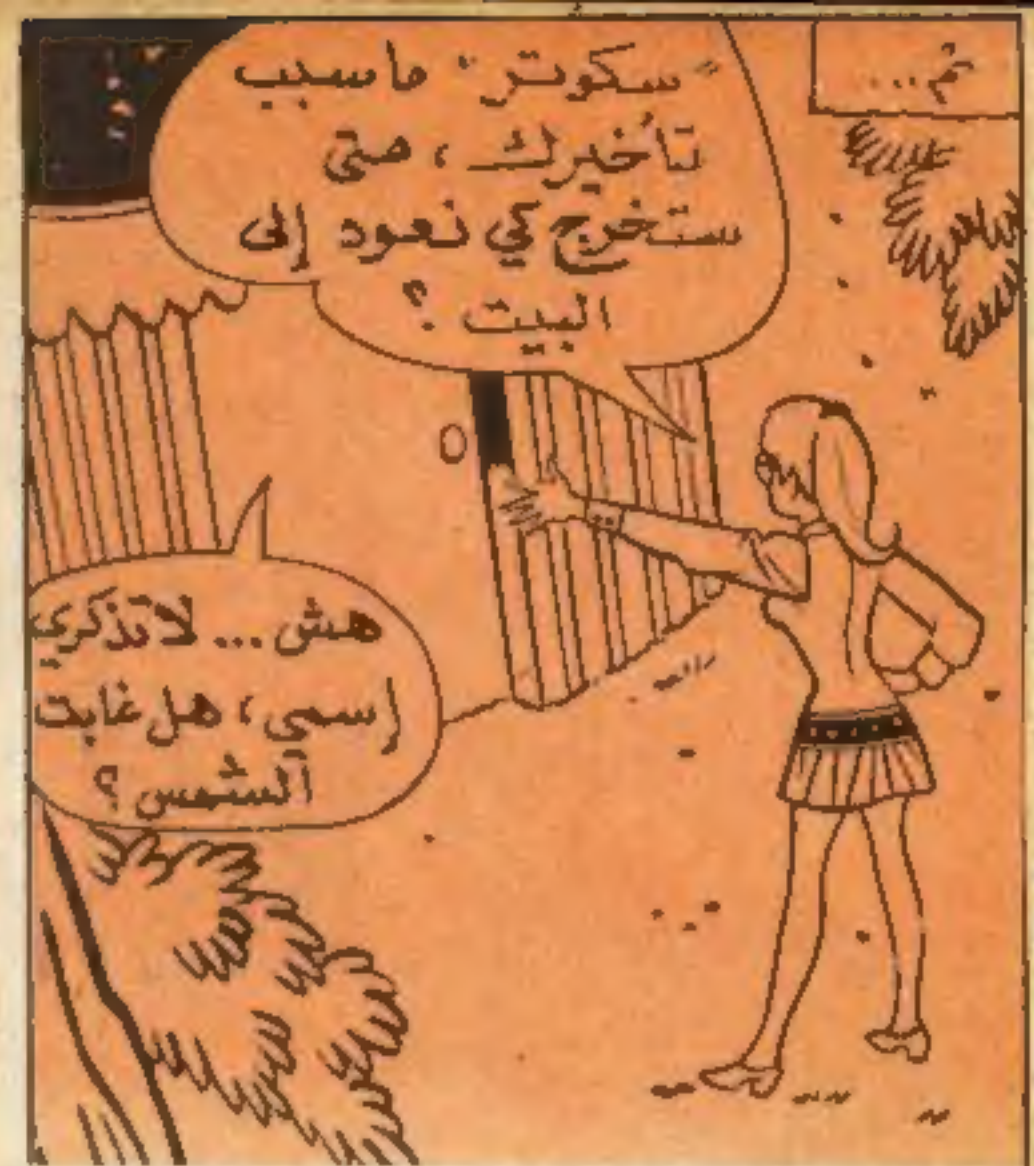 ثم...
"سكوتر" ما سبب
تأخيرك، متى
ستخرج كي نعود إلى
البيت؟
هش... لا تذكري
إسمي، هل غابت
الشمس؟